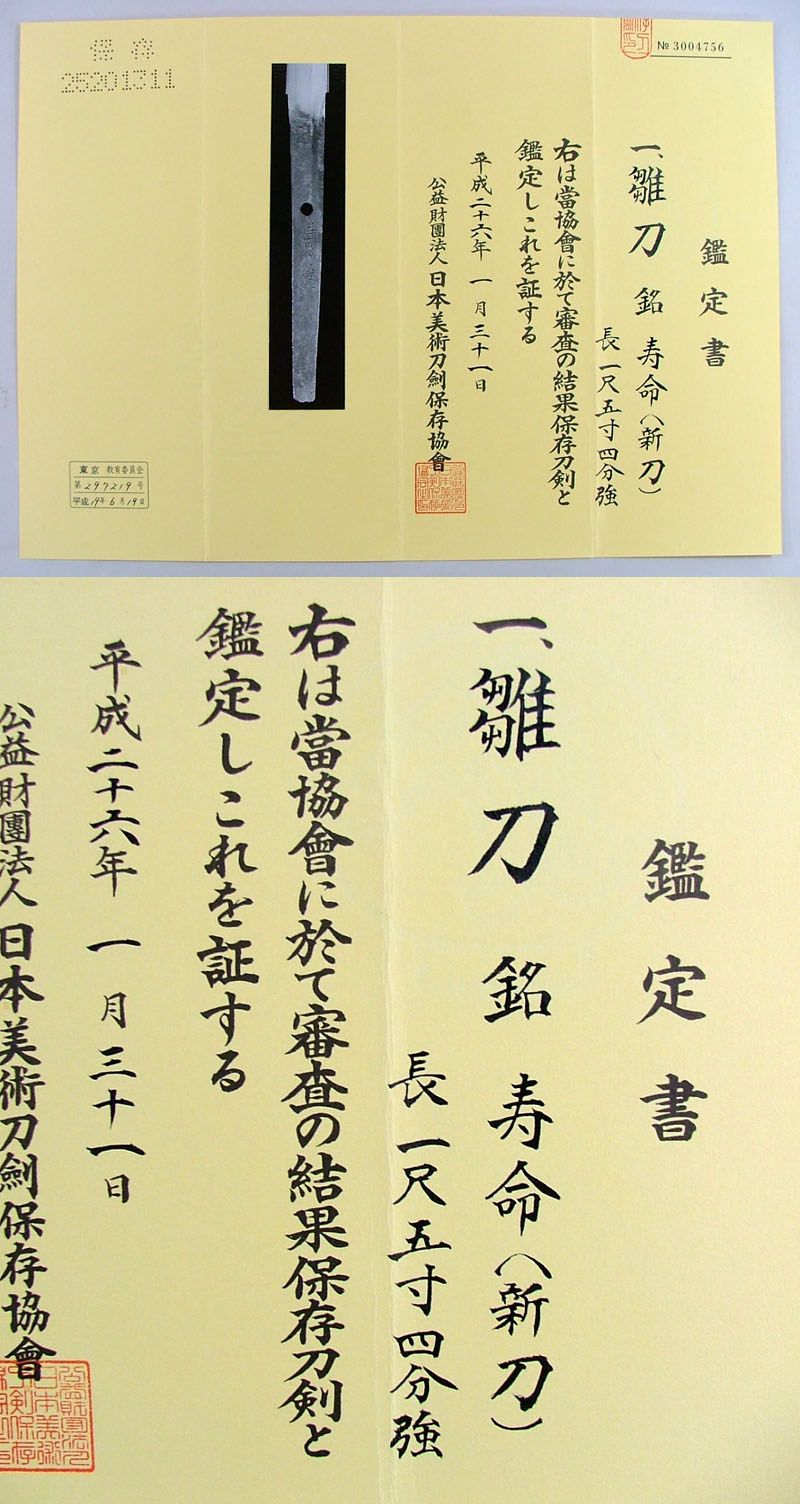 № 3004756
鑑定書
一、雛刀 銘 寿命(新刀)
長 一尺五寸四分強
右は當協會に於て審査の結果保存刀剣と
鑑定しこれを証する
平成二十六年 一月三十一日
公益財團法人 日本美術刀劍保存協會
保存
25201311
東京 教育委員会
第297219号
平成19年6月19日
鑑定書
一、雛刀 銘 寿命(新刀)
長 一尺五寸四分強
右は當協會に於て審査の結果保存刀剣と
鑑定しこれを証する
平成二十六年 一月三十一日
公益財團法人 日本美術刀劍保存協會